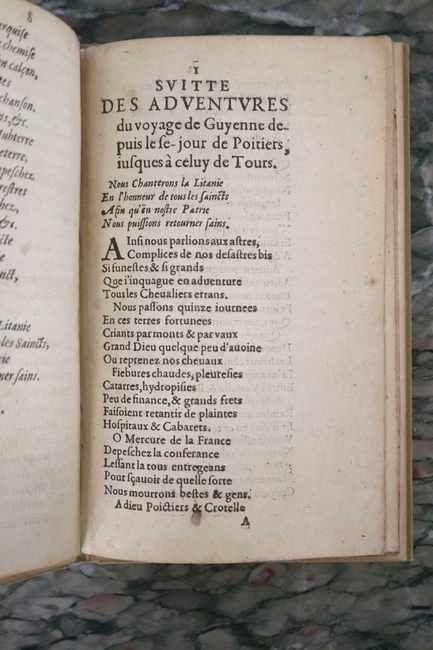 8
erquise
chemise
n calçon,
chanson.
ns, &c.
terre,
peschez.
restres
chez,
&c.
inct,
Litanie
les Saincts,
nie
ner sains.
I
SVITTE
DES ADVENTVRES
du voyage de Guyenne de-
puis le se-jour de Poitiers,
iusques à celuy de Tours.
Nous Chanterons la Litanie
En l'honneur de tous les saincts
Afin qu'en nostre Patrie
Nous puissions retourner sains.
AInsi nous parlions aux astres,
Complices de nos desastres bis
Si funestes, & si grands
Que i'inquague en adventure
Tous les Cheualiers errans.
Nous passons quinze iournees
En ces terres fortunees
Criants par monts & par vaux
Grand Dieu quelque peu d'auoine
Ou reprenez nos cheuaux
Fiebures chaudes, pleuresies
Catarres, hydropisies
Peu de finance, & grands frets
Faisoient retantir de plaintes
Hospitaux & Cabarets.
O Mercure de la France
Depeschez la conferance
Lessant la tous entregeans
Pour sçauoir de quelle sorte
Nous mourrons bestes & gens.
Adieu Poictiers & Crotelle
A